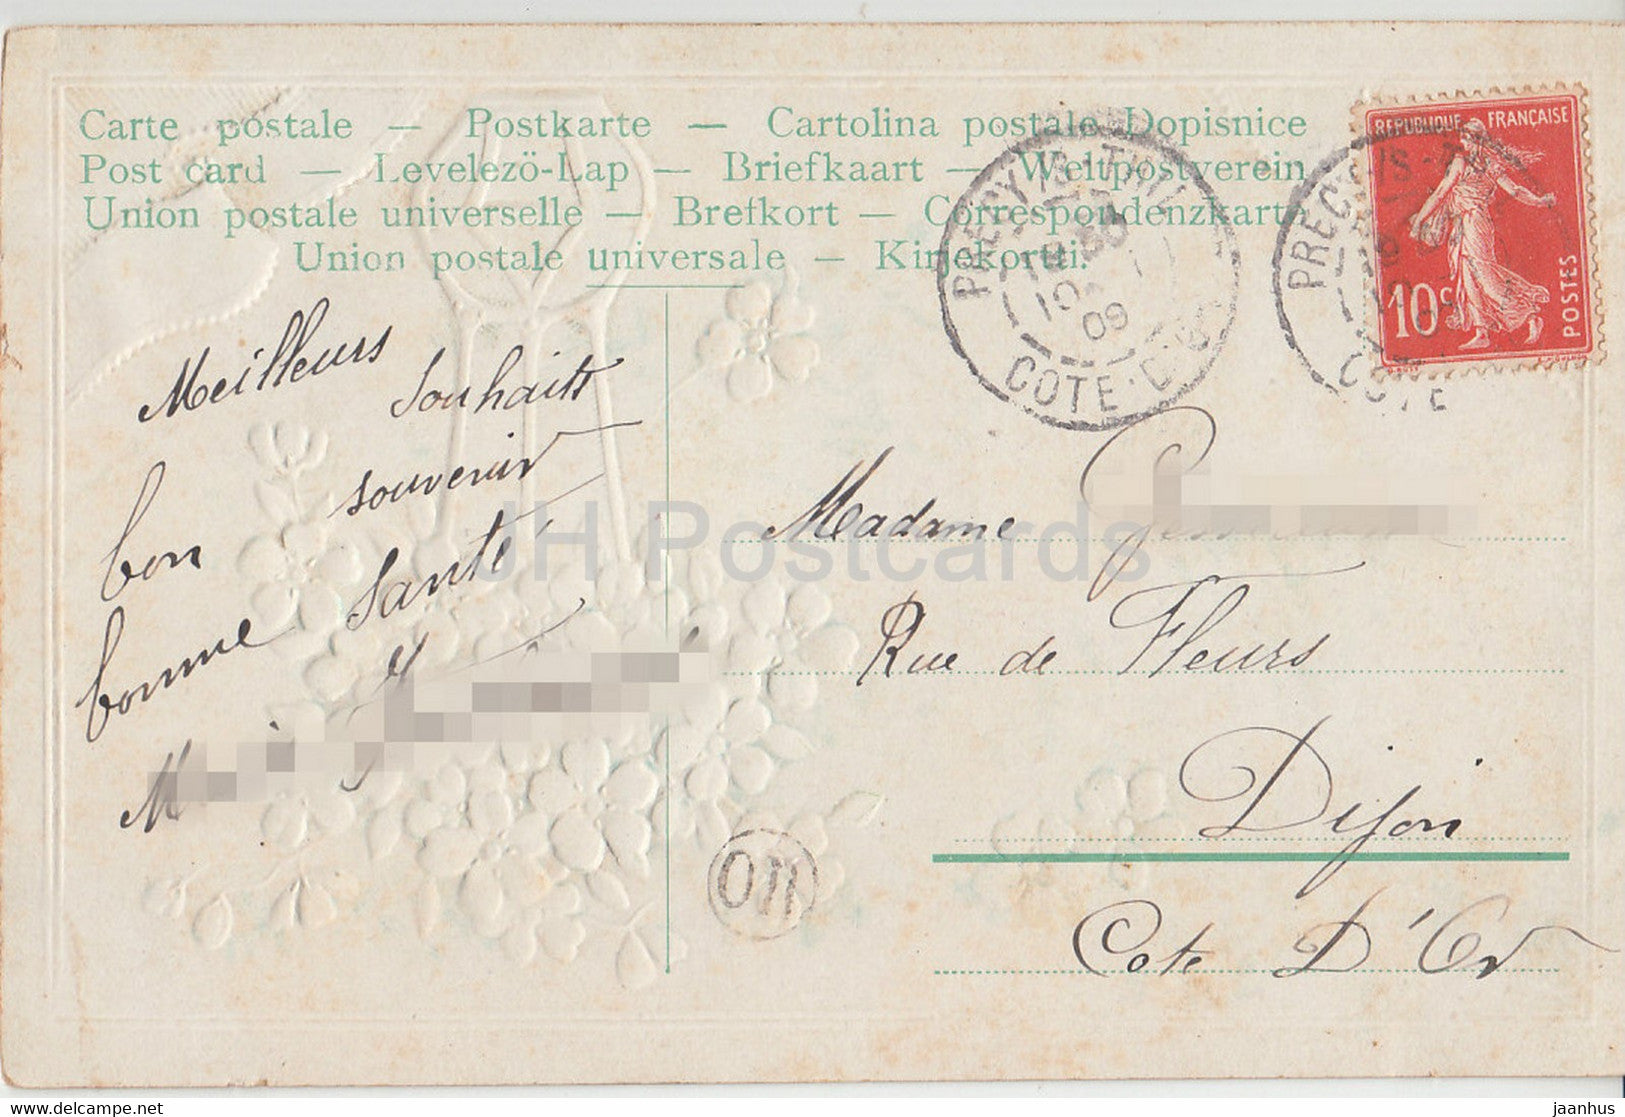 Carte postale — Postkarte — Cartolina postale Dopisnice
Post card — Levelezö-Lap — Briefkaart — Weltpostverein
Union postale universelle — Brefkort — Correspondenzkarte
Union postale universale — Kirjekortti.
REPUBLIQUE FRANÇAISE
10c
POSTES
PRECY-IS-THIL
10
09
COTE-D'OR
PRECY-IS-T
COTE
Meilleurs
Souhaits
bon souvenir
bonne Santé
M
Madame
Rue de Fleurs
Dijon
Cote D'Or
OM
JH Postcards
jaanhus @ www.delcampe.net